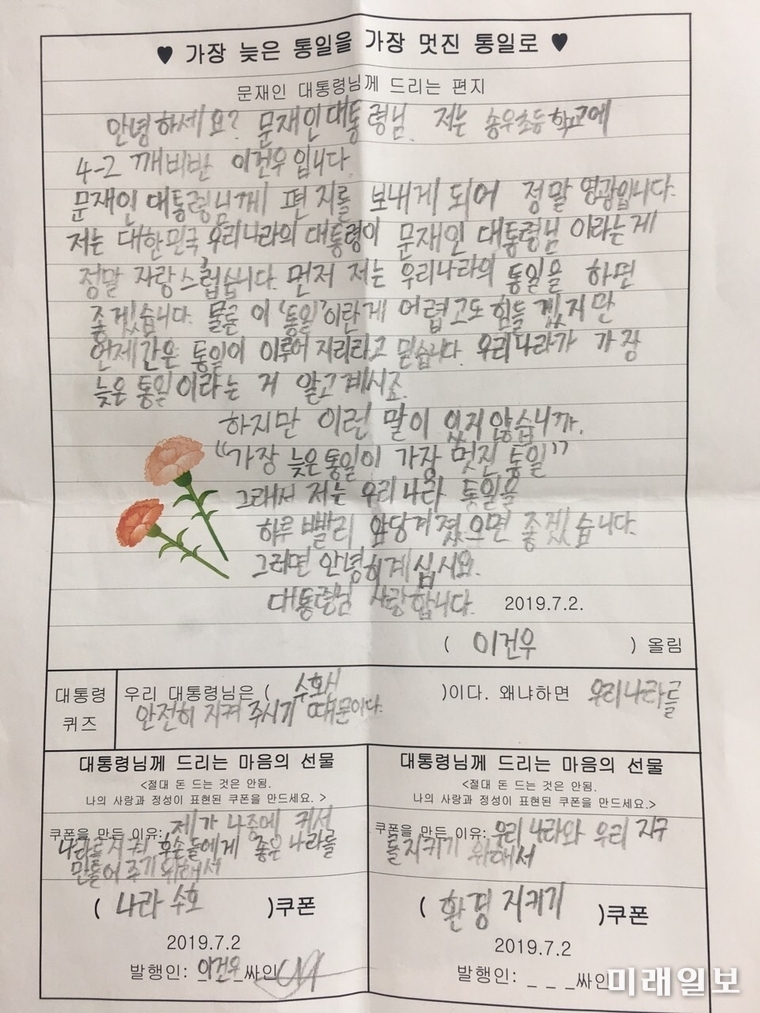 ♥ 가장 늦은 통일을 가장 멋진 통일로 ♥
문재인 대통령님께 드리는 편지
안녕하세요? 문재인대통령님. 저는 송우초등학교에
4-2 깨비반 이건우입니다.
문재인 대통령님께 편지를 보내게 되어 정말 영광입니다.
저는 대한민국 우리나라의 대통령이 문재인 대통령님 이라는게
정말 자랑스럽습니다. 먼저 저는 우리나라의 통일을 하면
좋겠습니다. 물론 이 '통일'이란게 어렵고도 힘들겠지만
언제간은 통일이 이루어지리라고 믿습니다. 우리나라가 가장
늦은 통일이라는 거 알고계시죠.
하지만 이런 말이 있지않습니까.
"가장 늦은통일이 가장 멋진 통일"
그래서 저는 우리나라 통일을
하루 빨리 앞당겨졌으면 좋겠습니다.
그러면 안녕히계십시요.
대통령님 사랑합니다. 2019.7.2.
( 이건우 ) 올림
대통령
퀴즈
우리 대통령님은 ( 수호신 )이다. 왜냐하면 우리나라를
안전히 지켜 주시기 때문이다.
대통령님께 드리는 마음의 선물
<절대 돈 드는 것은 안됨.
나의 사랑과 정성이 표현된 쿠폰을 만드세요.>
쿠폰을 만든 이유: 제가 나중에 커서
나라를 지켜 후손들에게 좋은 나라를
만들어 주기 위해서
( 나라 수호 )쿠폰
2019.7.2
발행인: 이건우 싸인
대통령님께 드리는 마음의 선물
<절대 돈 드는 것은 안됨.
나의 사랑과 정성이 표현된 쿠폰을 만드세요.>
쿠폰을 만든 이유: 우리 나라와 우리 지구
를지키기 위해서
( 환경 지키기 )쿠폰
2019.7.2
발행인: _ _ _싸인
미래일보